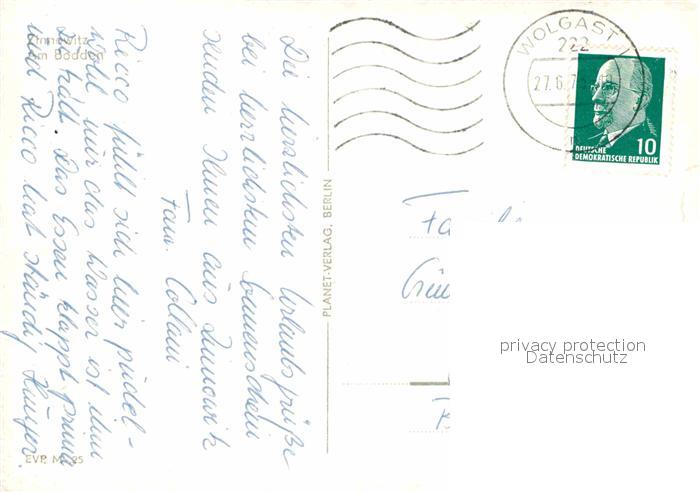 Zinnowitz
Am Bodden
Die herzlichsten Urlaubsgrüße
bei herrlichstem Sonnenschein
senden Ihnen aus Zinnowitz
Fam. Collani
Ricco fühlt sich hier pudel-
wohl nur das Wasser ist ihm
zu kalt. Das Essen klappt prima
und Ricco hat ständig Hunger.
EVP M -,25
PLANET-VERLAG, BERLIN
WOLGAST 1
222
27.6.7
10
DEUTSCHE
DEMOKRATISCHE REPUBLIK
privacy protection
Datenschutz